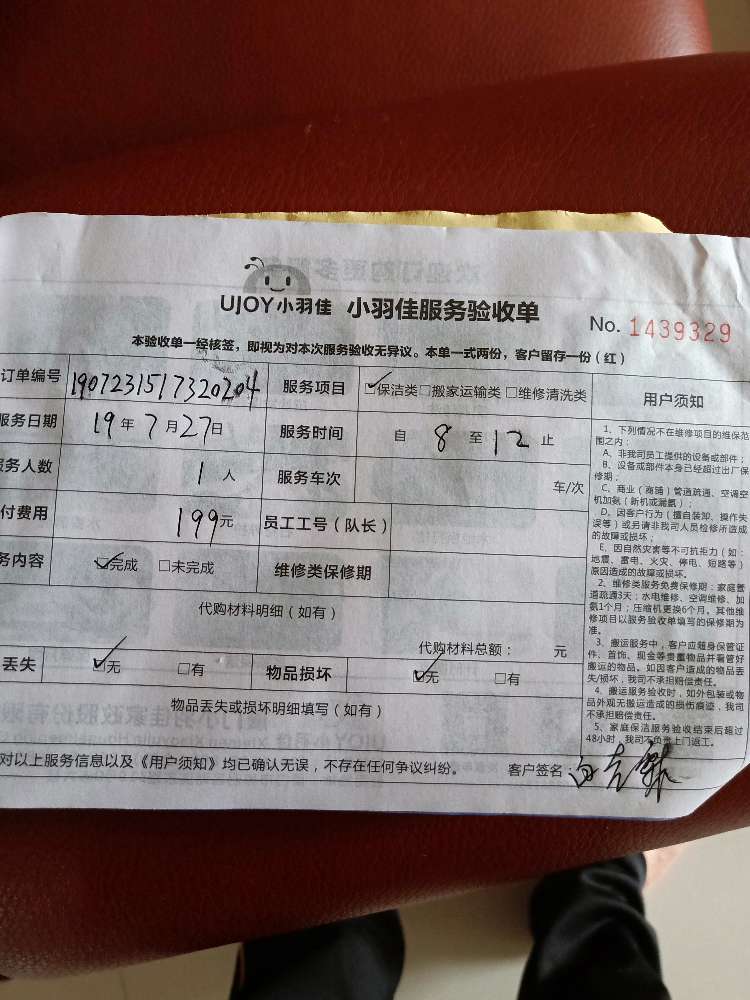 UJOY小羽佳 小羽佳服务验收单
No. 1439329
本验收单一经核签，即视为对本次服务验收无异议。本单一式两份，客户留存一份（红）
订单编号 1907231517320204 服务项目 保洁类 □搬家运输类 □维修清洗类
服务日期 19年7月27日 服务时间 自 8 至 12 止
务人数 1人 服务车次 车/次
付费用 199元 员工工号（队长）
务内容 完成 □未完成 维修类保修期
代购材料明细（如有）
代购材料总额： 元
丢失 无 □有 物品损坏 无 □有
物品丢失或损坏明细填写（如有）
对以上服务信息以及《用户须知》均已确认无误，不存在任何争议纠纷。 客户签名：
用户须知
1、下列情况不在维修项目的维保范
围之内：
A、非我司员工提供的设备或部件；
B、设备或部件本身已经超过出厂保
修期；
C、商业（商铺）管道疏通、空调空
机加氨（新机或漏氨）
D、因客户行为（擅自装卸、操作失
误等）或另请非我司人员检修所造成
的故障或损坏；
E、因自然灾害等不可抗拒力（如：
地震、雷电、火灾、停电、短路等）
原因造成的故障或损坏。
2、维修类服务免费保修期：家庭管
道疏通3天；水电维修、空调维修、加
氨1个月；压缩机更换6个月。其他维
修项目以服务验收单填写的保修期为
准。
3、搬运服务中，客户应随身保管证
件、首饰、现金等贵重物品并看管好
搬运的物品。如因客户造成的物品丢
失/损坏，我司不承担赔偿责任。
4、搬运服务验收时，如外包装或物
品外观无搬运造成的损伤痕迹，我司
不承担赔偿责任。
5、家庭保洁服务验收结束后超过
48小时，我司不负责上门返工。